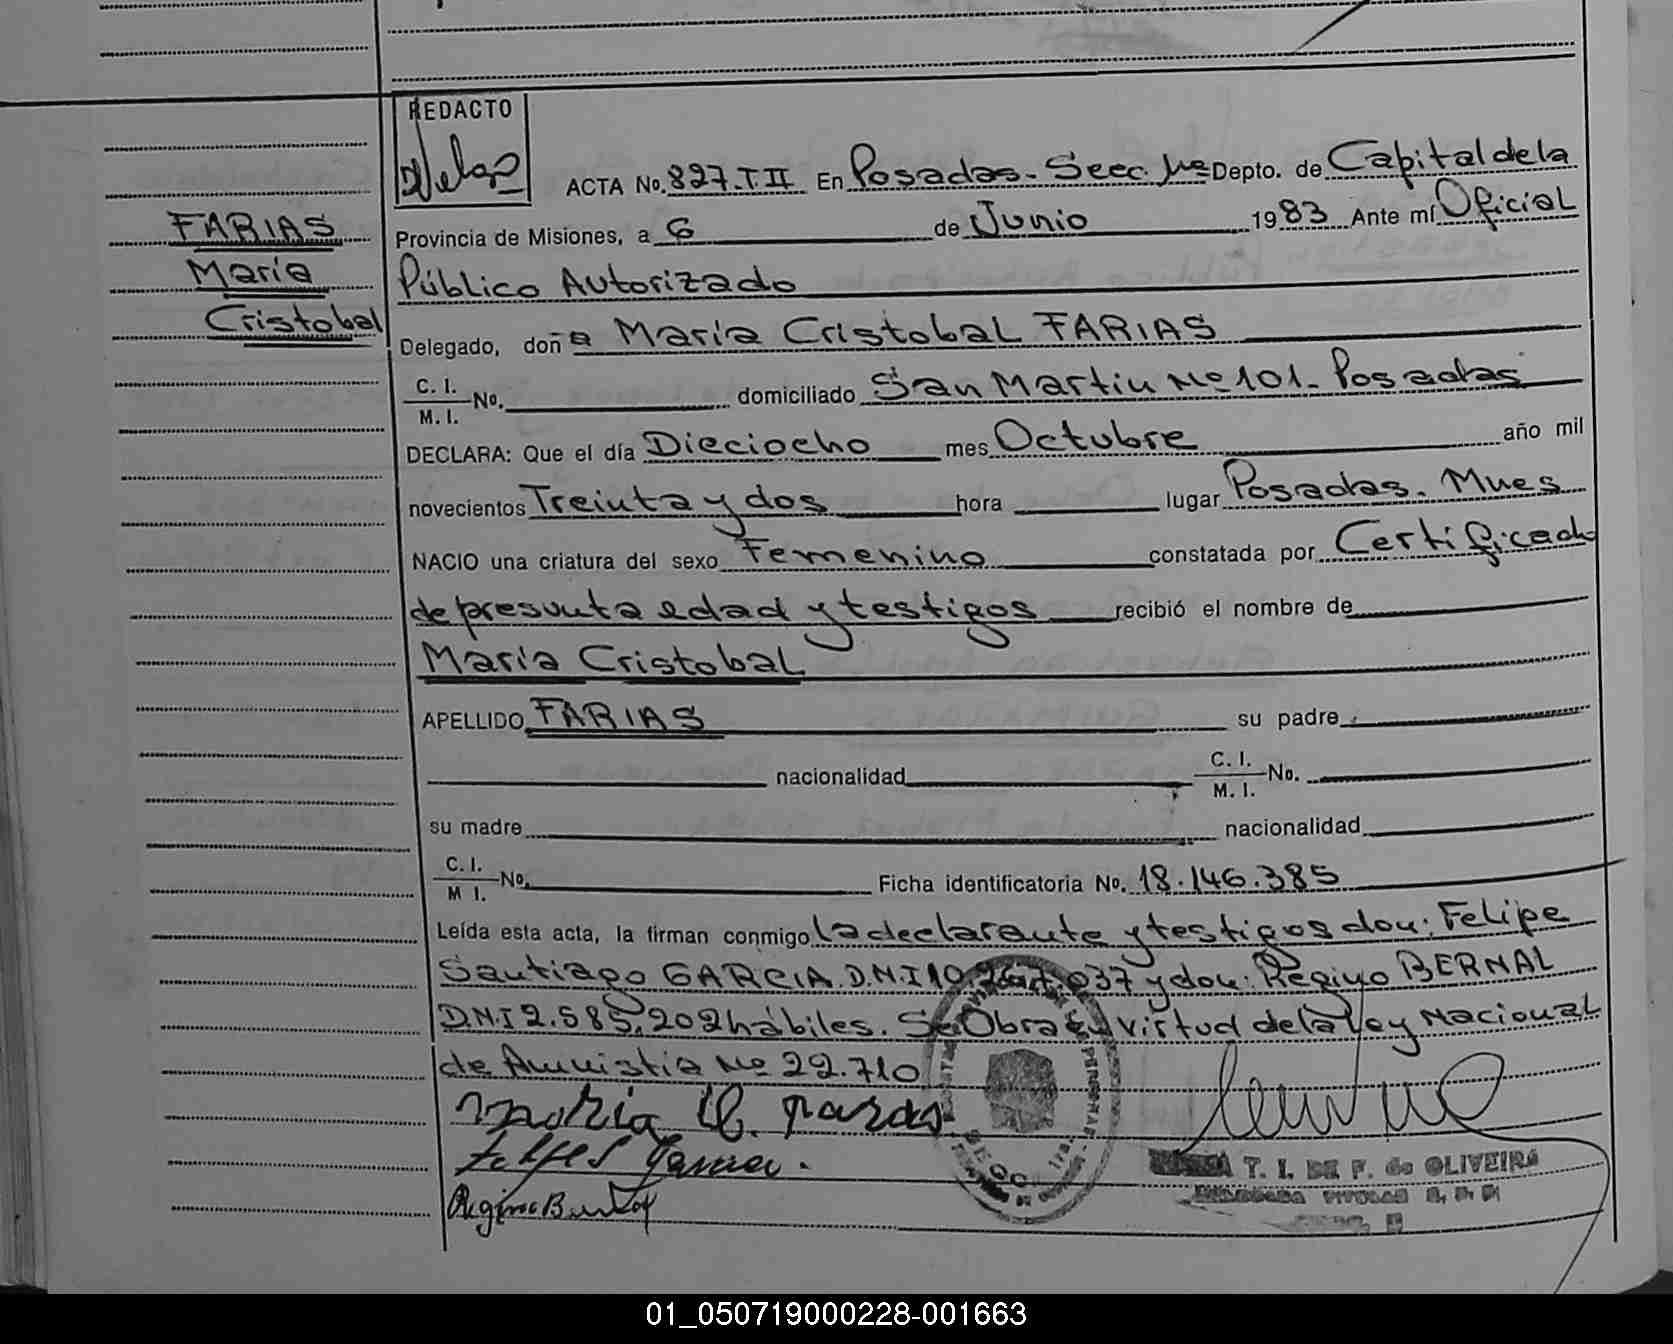 REDACTO
ACTA No. 827.T.II En Posadas. Secc. 1ra Depto. de Capital de la
FARIAS
Maria
Cristobal
Provincia de Misiones, a 6 de Junio 1983 Ante mí Oficial
Público Autorizado
Delegado, doña Maria Cristobal FARIAS
C. I.
M. I. No. domiciliado San Martin No 101. Posadas
DECLARA: Que el día Dieciocho mes Octubre año mil
novecientos Treinta y dos hora lugar Posadas. Mnes
NACIO una criatura del sexo Femenino constatada por Certificado
de presunta edad y testigos recibió el nombre de
Maria Cristobal
APELLIDO FARIAS su padre
nacionalidad C. I.
M. I. No.
su madre nacionalidad
C. I.
M I. No. Ficha identificatoria No. 18.146.385
Leída esta acta, la firman conmigo la declarante y testigos don: Felipe
Santiago GARCIA. D.N.I 10.267.037 y don: Regino BERNAL
D.N.I 2.585.202 hábiles. Se Obra En virtud de la Ley Nacional
de Amnistia No 22.710
Maria C. Farias
Felipe S Garcia.
T. I. DE F. de OLIVEIRA
01_050719000228-001663